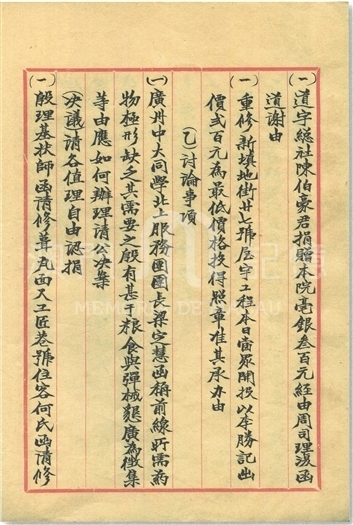 (一)道字總社陳伯豪君捐贈本院毫銀叁百元經由周司理復函
道謝由
(一)重修新填地街廿七號屋宇工程本日當眾開投以李勝記出
價弍百元為最低價格投得照章准其承办由
乙討論事項
(一)廣州中大同學北上服務團團長梁定慧函稱前線所需葯
物極形缺乏其需要之殷有甚于粮食與彈械懇廣為徵集
等由應如何辦理請公決案
(決議請各值理自由認捐
(一)殷理基扶師函請修葺丸面大工匠巷 號住客何氏函請修
MEM
DE MACAU